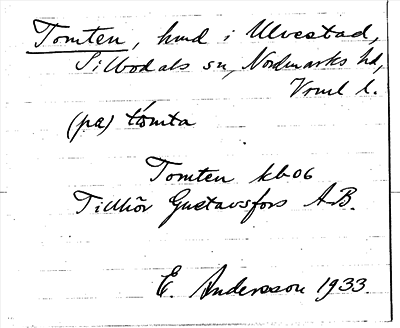 Tomten, hmd i Ulvestad,
Sillbodals sn, Nordmarks hd,
Vrml l.
(pa) tömta
Tomten kb 06
Tillhör Gustavsfors AB.
E. Andersson 1933.